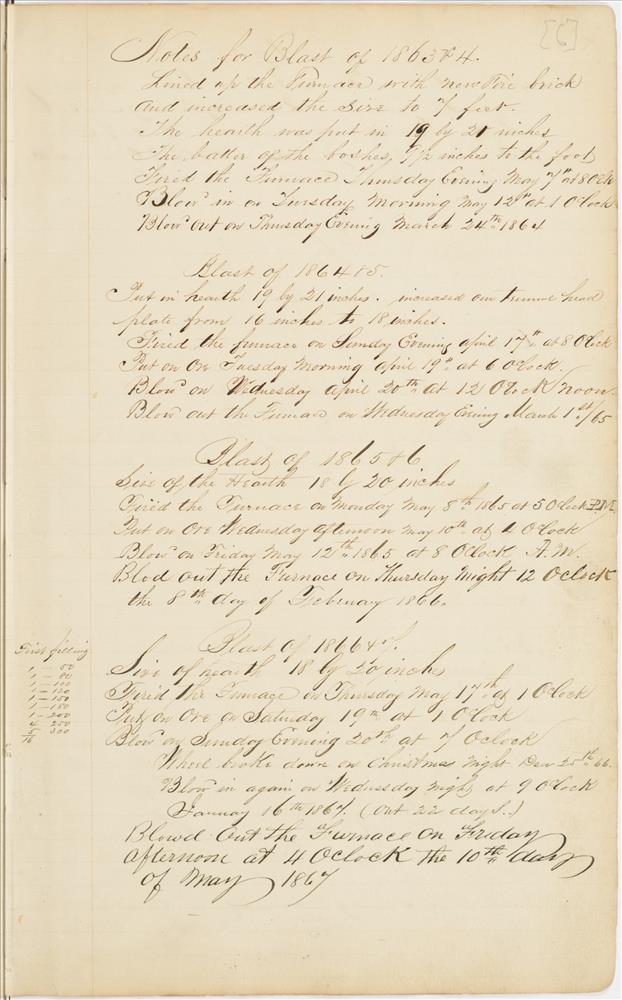 [6]
Notes for Blast of 1863 & 4.
Lined up the Furnace with new Fire brick
and increased the Size to 7 feet.
The hearth was put in 19 by 21 inches
The batter of the boshes, 7 1/2 inches to the foot
Fired the Furnace Thursday Evening May 7th at 8 Oclk
Blow'd in on Tuesday Morning May 12th at 1 Oclock
Blow'd out on Thursday Evening March 24th 1864
Blast of 1864 & 5.
Put in hearth 19 by 21 inches. increased our head
plate from 16 inches to 18 inches.
Fired the furnace on Sunday Evening april 17th at 8 Oclock
Put on Ore Tuesday Morning april 19th at 6 Oclock.
Blow'd on Wednesday april 20th at 12 Oclock Noon.
Blow'd out the Furnace on Wednesday Evening March 1st/65
Blast of 1865 & 6
Size of the Hearth 18 by 20 inches
Fired the Furnace on Monday May 8th 1865 at 5 Oclock P.M.
Put on Ore Wednesday afternoon May 10th at 4 Oclock
Blow'd on Friday May 12th 1865 at 8 Oclock A.M.
Blod out the Furnace on Thursday Might 12 Oclock
the 8th day of February 1866.
Blast of 1866 & 7.
Size of hearth 18 by 20 inches
Fired the Furnace on Thursday May 17th at 1 Oclock
Put on Ore on Saturday 19th at 1 Oclock
Blow'd on Sunday Evening 20th at 7 Oclock
Wheel broke down on Christmas Night Dec 25th 66.
Blow'd in again on Wednesday Night at 9 Oclock
January 16th 1867. (Out 22 days.)
Blowd Out the Furnace on Friday
afternoon at 4 Oclock the 10th day
of May 1867
First filling
1 - 50
1 - 80
1 - 100
1 - 120
1 - 150
1 - 180
1 - 200
4 - 250
5 300
16